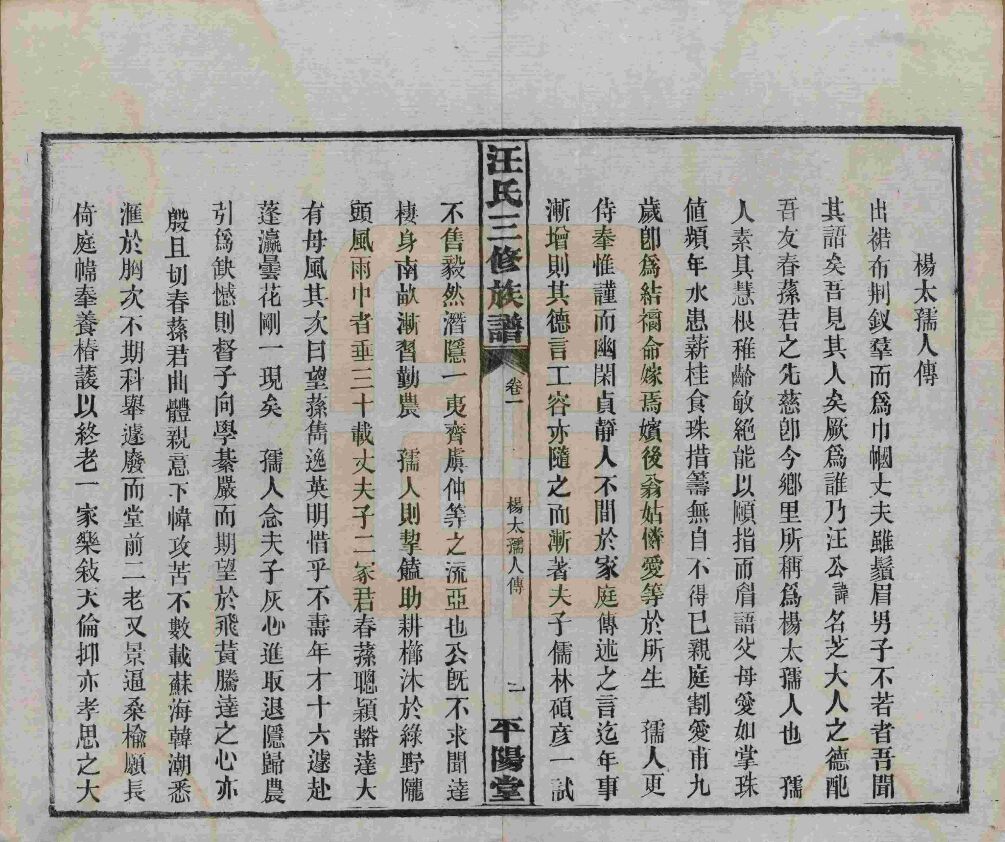 楊太孺人傳
出裙布荆釵羣而爲巾幗丈夫雖鬚眉男子不若者吾聞
其語矣吾見其人矣厥爲誰乃汪公諱名芝大人之德配
吾友春蓀君之先慈卽今鄕里所稱爲楊太孺人也 孺
人素具慧根稚齡敏絶能以頤指而眉語父母愛如掌珠
値頻年水患薪桂食珠措籌無自不得已親庭割愛甫九
歲卽爲結褵命嫁焉嬪後翁姑憐愛等於所生 孺人更
侍奉惟謹而幽閑貞靜人不間於家庭傳述之言迄年事
漸增則其德言工容亦隨之而漸著夫子儒林碩彦一試
汪氏三修族譜
卷一
楊太孺人傳
一
平陽堂
不售毅然潛隱一夷齊虞仲等之流亞也公旣不求聞達
棲身南畝漸習勤農 孺人則挈饁助耕櫛沐於綠野隴
頭風雨中者垂三十載丈夫子二冢君春蓀聰穎豁達大
有母風其次曰望蓀雋逸英明惜乎不壽年才十六遽赴
蓬瀛曇花剛一現矣 孺人念夫子灰心進取退隱歸農
引爲缺憾則督子向學綦嚴而期望於飛黃騰達之心亦
殷且切春蓀君曲體親意下幃攻苦不數載蘇海韓潮悉
滙於胸次不期科舉遽廢而堂前二老又景逼桑榆願長
倚庭幃奉養椿萱以終老一家樂敍天倫抑亦孝思之大